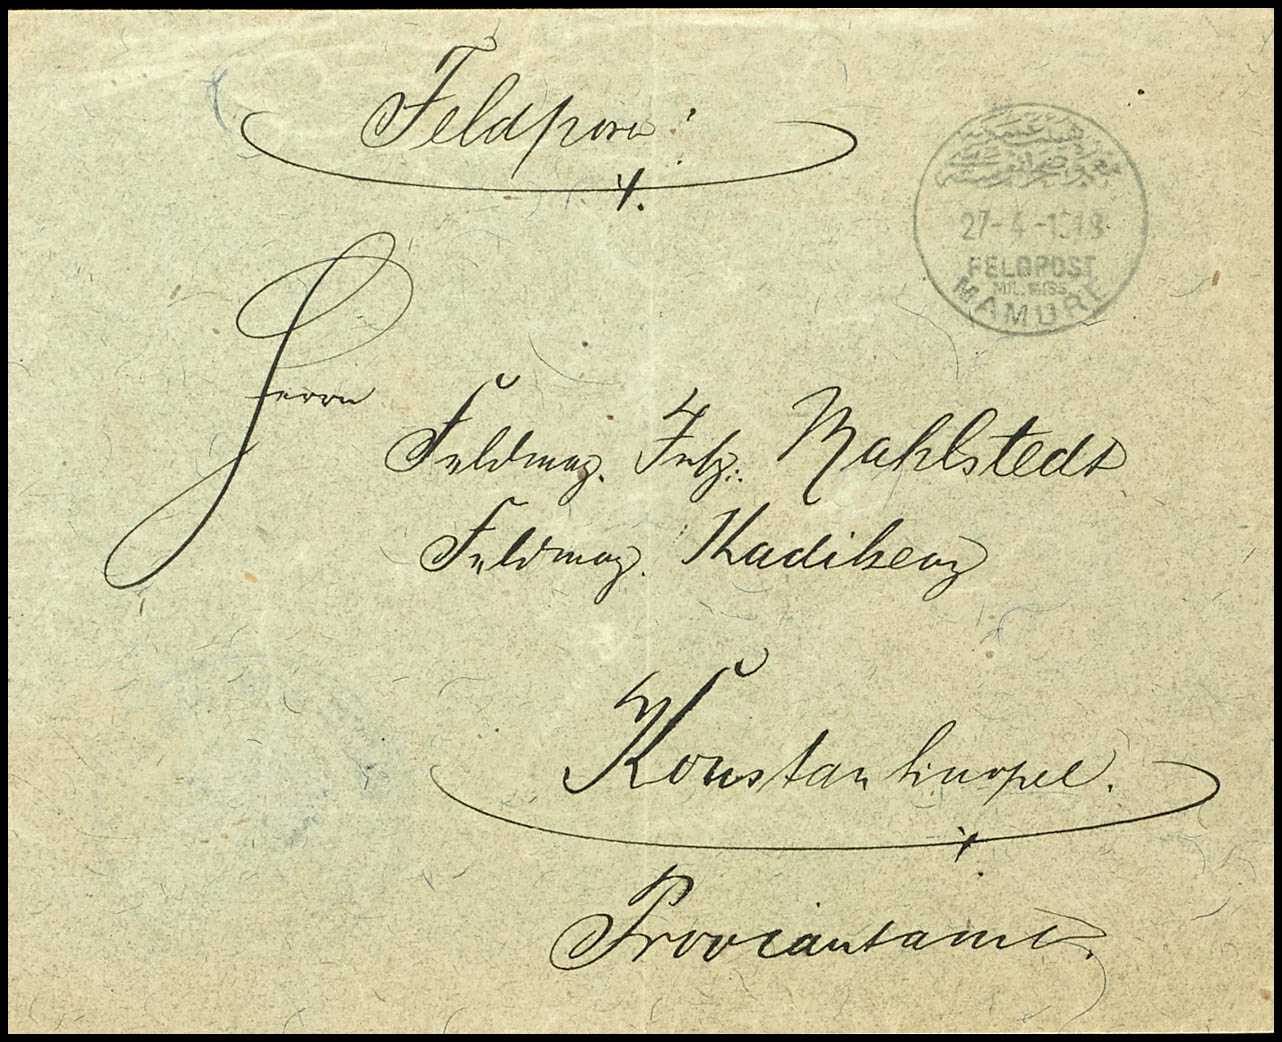 Feldpost!
27-4-1918
FELDPOST
MIL. MISS.
MAMURE
Herrn
Feldmag. Insp. Mahlstedt
Feldmag. Kadikeuy
Konstantinopel.
Proviantamt.